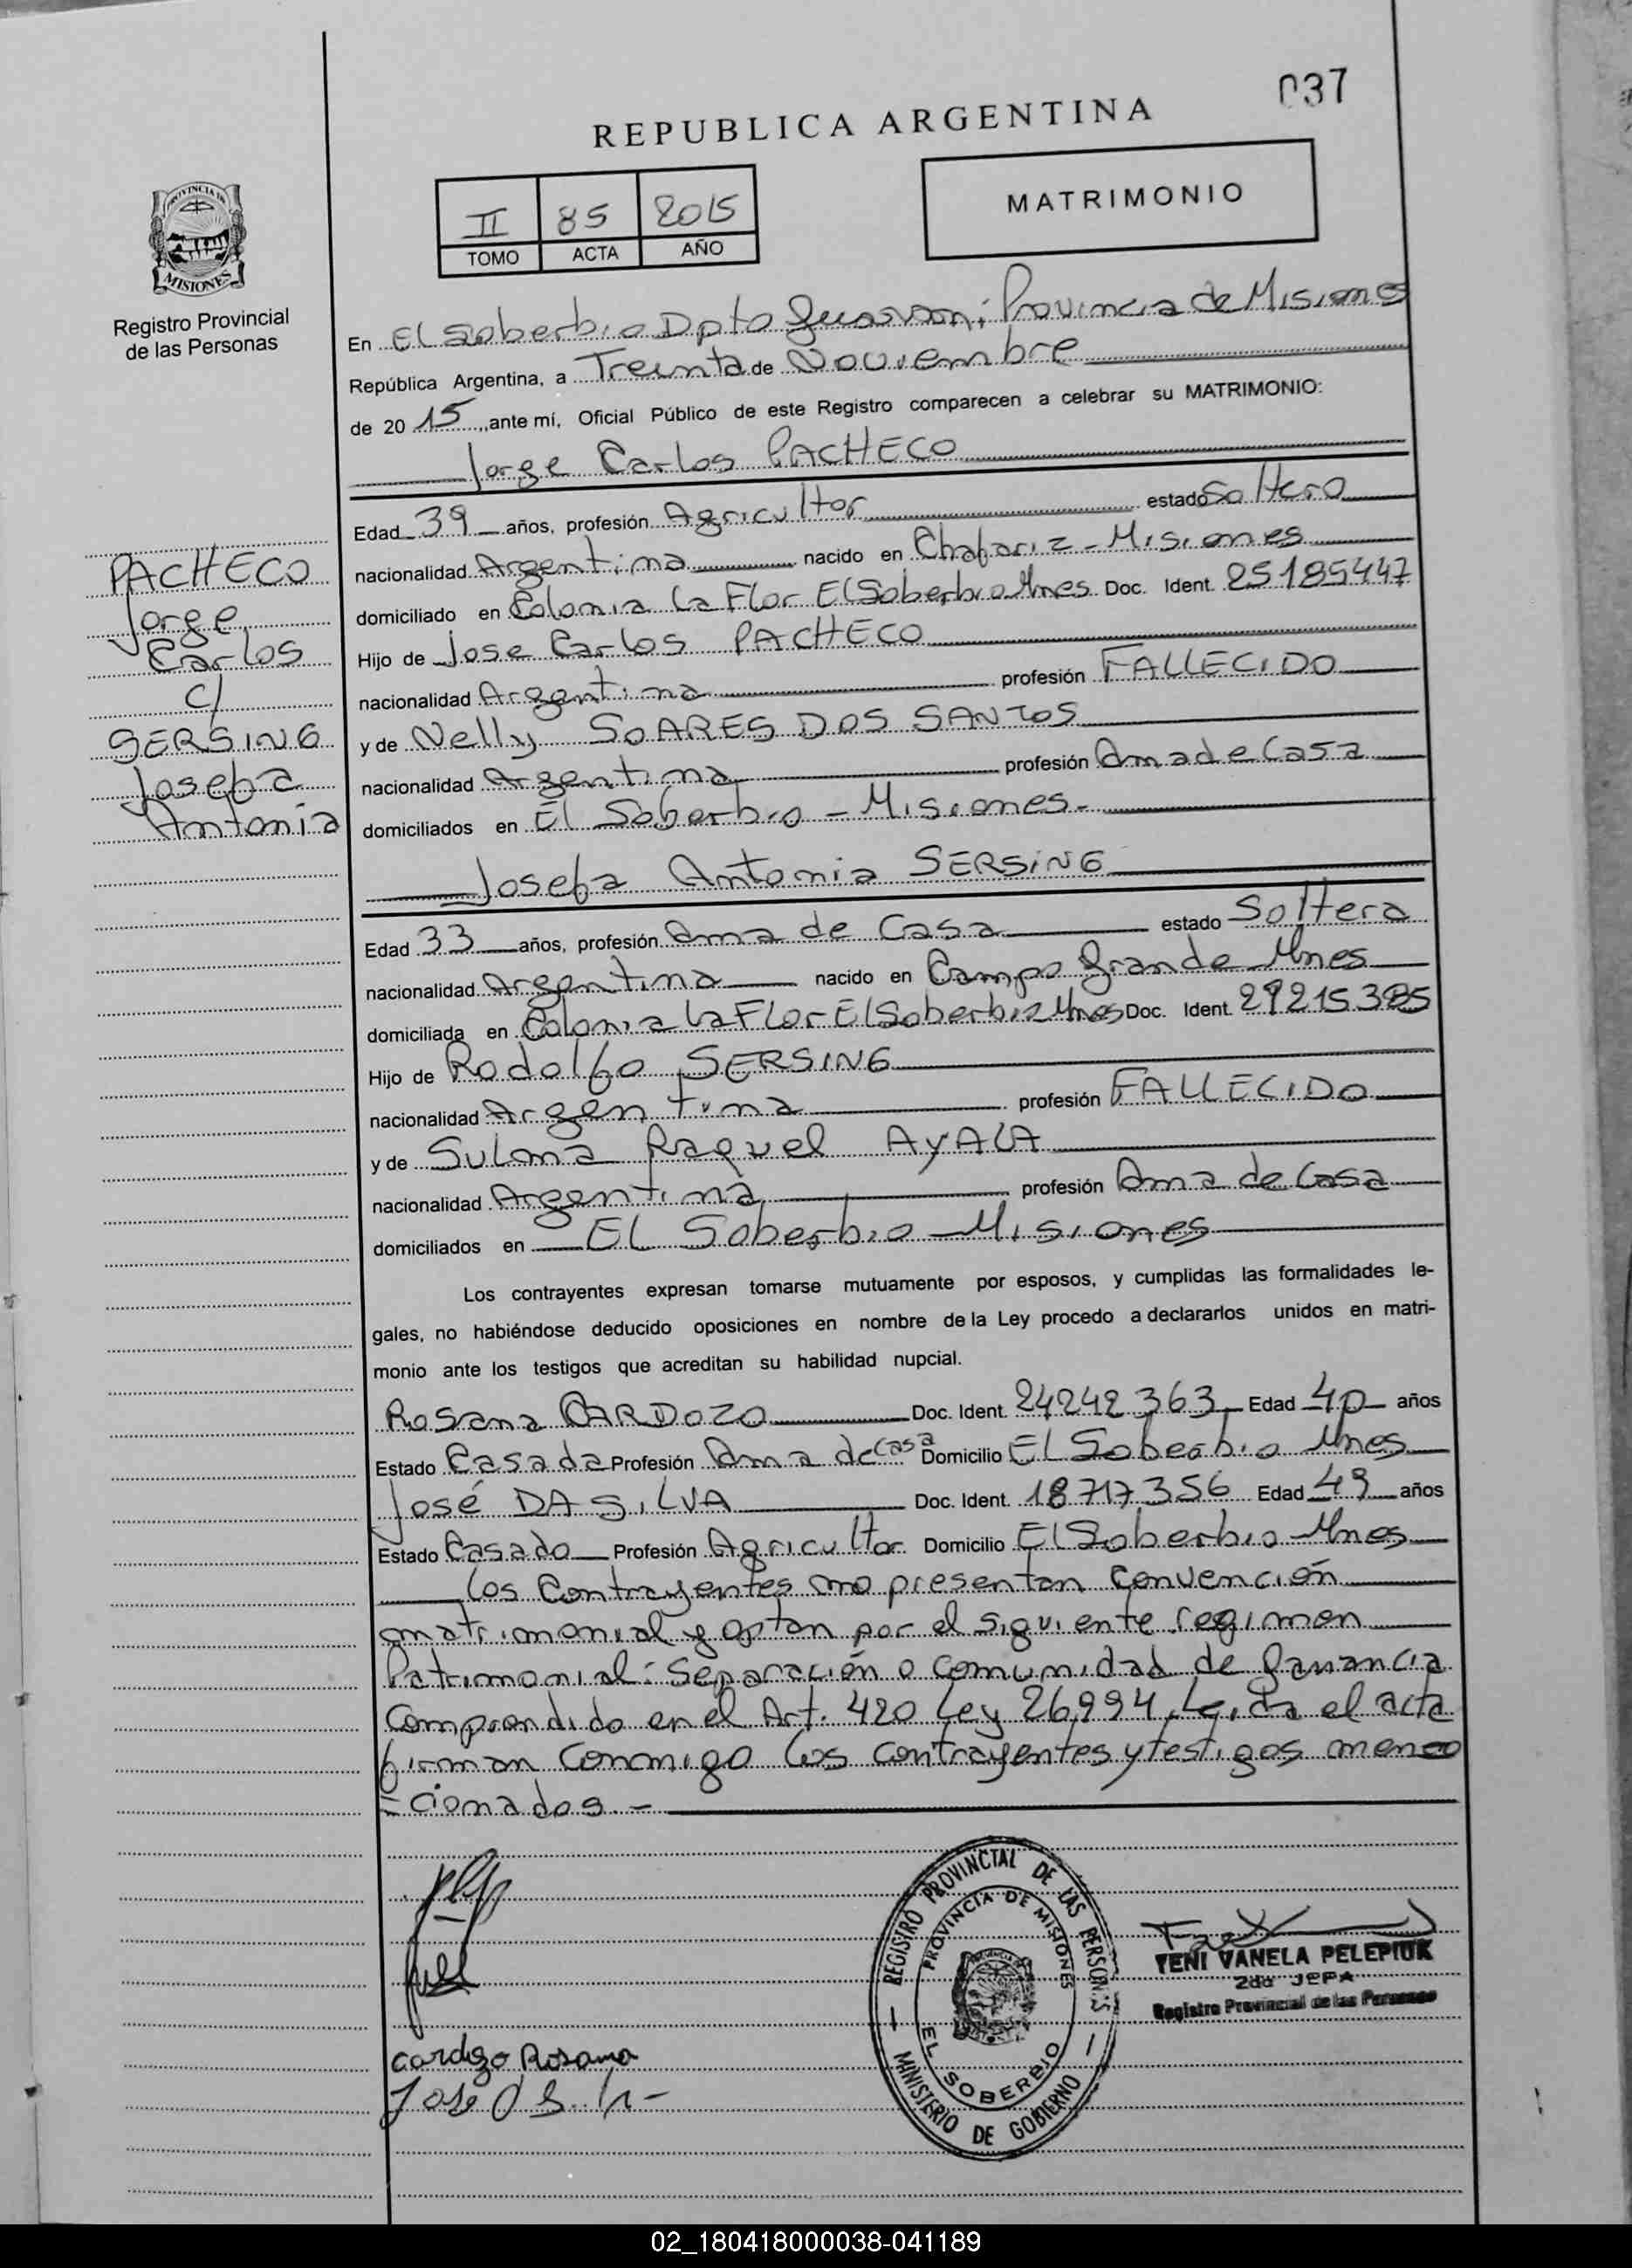 037
REPUBLICA ARGENTINA
PROVINCIA DE
MISIONES
Registro Provincial
de las Personas
II 85 2015
TOMO ACTA AÑO
MATRIMONIO
En El Soberbio Dpto Guarani; Provincia de Misiones
República Argentina, a Treinta de Noviembre
de 20 15, ante mí, Oficial Público de este Registro comparecen a celebrar su MATRIMONIO:
Jorge Carlos PACHECO
Edad 39 años, profesión Agricultor estado Soltero
nacionalidad Argentina nacido en Chafariz - Misiones
domiciliado en Colonia La Flor El Soberbio Mnes Doc. Ident. 25185447
Hijo de Jose Carlos PACHECO
nacionalidad Argentina profesión FALLECIDO
y de Nelly SOARES DOS SANTOS
nacionalidad Argentina profesión Ama de Casa
domiciliados en El Soberbio - Misiones-
PACHECO
Jorge
Carlos
c/
SERSING
Josefa
Antonia
Josefa Antonia SERSING
Edad 33 años, profesión Ama de Casa estado Soltera
nacionalidad Argentina nacido en Campo Grande Mnes
domiciliada en Colonia La Flor El Soberbio Mnes Doc. Ident.
Hijo de Rodolfo SERSING
nacionalidad Argentina profesión FALLECIDO
y de Sulma Raquel AYALA
nacionalidad Argentina profesión Ama de Casa
domiciliados en El Soberbio - Misiones
Los contrayentes expresan tomarse mutuamente por esposos, y cumplidas las formalidades le-
gales, no habiéndose deducido oposiciones en nombre de la Ley procedo a declararlos unidos en matri-
monio ante los testigos que acreditan su habilidad nupcial.
Rosana CARDOZO Doc. Ident. 24242363 Edad 40 años
Estado Casada Profesión Ama de casa Domicilio El Soberbio Mnes
José DA SILVA Doc. Ident. 18717356 Edad 49 años
Estado Casado Profesión Agricultor Domicilio El Soberbio Mnes
Los Contrayentes no presentan convención
matrimonial y optan por el siguiente regimen
Patrimonial: Separación o comunidad de ganancia
comprendido en el Art. 420 Ley 26994. Leida el acta
firman conmigo los contrayentes y testigos menco
=cionados.-
REGISTRO PROVINCIAL DE LAS PERSONAS
PROVINCIA DE MISIONES
EL SOBERBIO
MINISTERIO DE GOBIERNO
YENI VANELA PELEPIUK
2da JEFA
Registro Provincial de las Personas
Cardozo Rosana
02_180418000038-041189